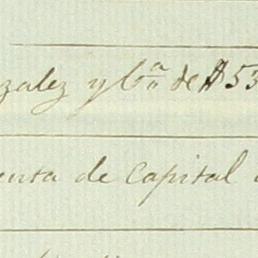 zalez y Cª de $53
enta de Capital